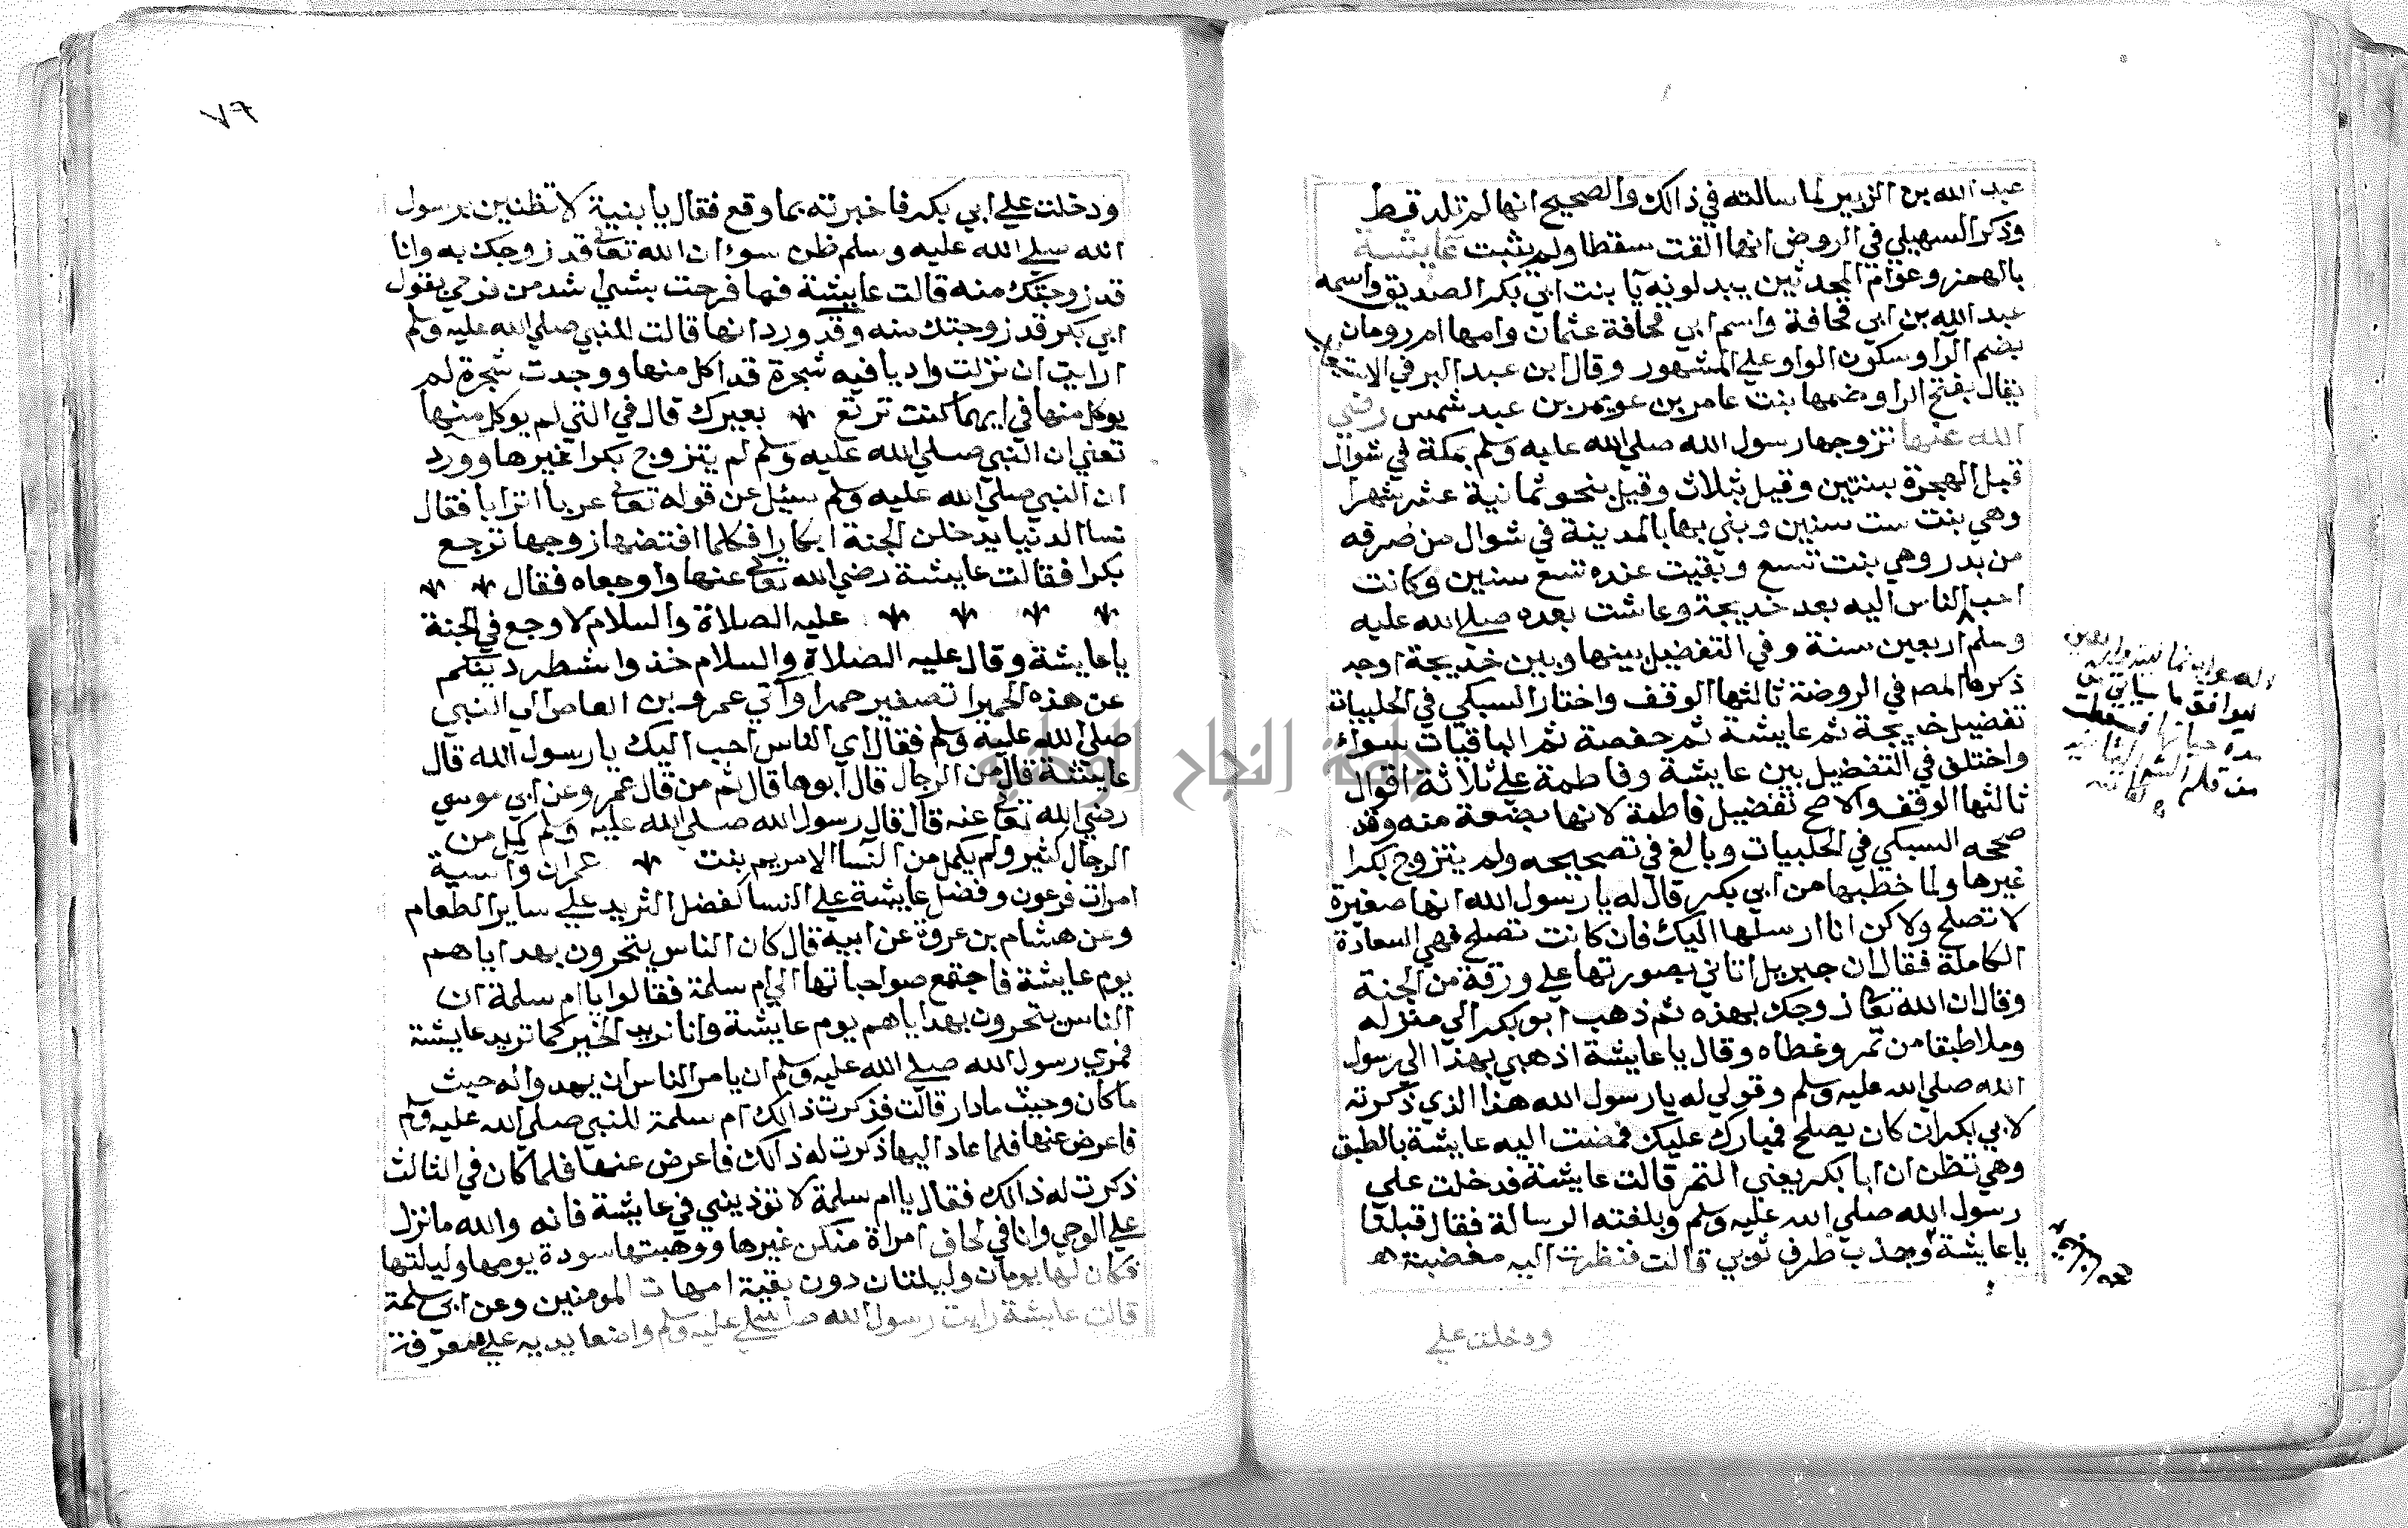 عبد الله بن الزبير لما سالته في ذالك والصحيح انها لم تلد قط
وذكر السهيلي في الروض انها القت سقطا ولم يثبت عايشة
بالهمز وعوام المحدثين يبدلونه يآ بنت ابي بكر الصديق واسمه
عبد الله بن ابي قحافة واسم ابي قحافة عثمان وامها ام رومان
بضم الرا وسكون الواو علي المشهور وقال ابن عبد البر في الاستيعاب
يقال بفتح الرا وضمها بنت عامر بن عويمر بن عبد شمس رضي
الله عنها تزوجها رسول الله صلي الله عليه وسلم بمكة في شوال
قبل الهجرة بسنتين وقيل بثلاث وقيل بنحو ثمانية عشر شهرا
وهي بنت ست سنين وبني بها بالمدينة في شوال منصرفه
من بدر وهي بنت تسع وبقيت عنده تسع سنين وكانت
احب الناس اليه بعد خديجة وعاشت بعده صلي الله عليه
وسلم اربعين سنة وفي التفضيل بينها وبين خديجة اوجه
ذكرها المص في الروضة ثالثها الوقف واختار السبكي في الحلبيات
تفضيل خديجة ثم عايشة ثم حفصة ثم الباقيات سوآء
واختلف في التفضيل بين عايشة وفاطمة علي ثلاثة اقوال
ثالثها الوقف والاصح تفضيل فاطمة لانها بضعة منه وقد
صححه السبكي في الحلبيات وبالغ في تصحيحه ولم يتزوج بكرا
غيرها ولما خطبها من ابي بكر قال له يا رسول الله انها صغيرة
لا تصلح ولاكن انا ارسلها اليك فان كانت تصلح فهي السعادة
الكاملة فقال ان جبريل اتاني بصورتها علي ورقة من الجنة
وقال ان الله تعالي زوجك بهذه ثم ذهب ابو بكر الي منزله
وملا طبقا من تمر وغطاه وقال يا عايشة اذهبي بهذا الي رسول
الله صلي الله عليه وسلم وقولي له يا رسول الله هذا الذي ذكرته
لابي بكر ان كان يصلح فمبارك عليكن فمضت اليه عايشة بالطبق
وهي تظن ان ابا بكر يعني التمر قالت عايشة فدخلت علي
رسول الله صلي الله عليه وسلم وبلغته الرسالة فقال قبلنا
يا عايشة وجذب طرف ثوبي قالت فنظرت اليه مغضبة
ودخلت علي
ودخلت علي ابي بكر فاخبرته بما وقع فقال يا بنية لا تظنين برسول
الله صلي الله عليه وسلم ظن سوء ان الله تعالي قد زوجك به وانا
قد زوجتك منه قالت عايشة فما فرحت بشيء اشد من فرحي بقول
ابي بكر قد زوجتك منه وقد ورد انها قالت للنبي صلي الله عليه وسلم
ارايت ان نزلت واديا فيه شجرة قد اكل منها ووجدت شجرة لم
يوكل منها في ايهما كنت ترتع بعيرك قال في التي لم يوكل منها
تعني ان النبي صلي الله عليه وسلم لم يتزوج بكرا غيرها وورد
ان النبي صلي الله عليه وسلم سيئل عن قوله تعالي عربا اترابا فقال
نسا الدنيا يدخلن الجنة ابكارا فكلما افتضها زوجها ترجع
بكرا فقالت عايشة رضي الله تعالي عنها واوجعاه فقال
عليه الصلاة والسلام لا وجع في الجنة
يا عايشة وقال عليه الصلاة والسلام خذوا شطر دينكم
عن هذه الحميرا تصغير حمرا وآتي عمرو بن العاص الي النبي
صلي الله عليه وسلم فقال اي الناس احب اليك يا رسول الله قال
عايشة قال من الرجال قال ابوها قال ثم من قال عمر وعن ابي موسي
رضي الله تعالي عنه قال قال رسول الله صلي الله عليه وسلم كمل من
الرجال كثير ولم يكمل من النسا الا مريم بنت عمران وآسية
امرات فرعون وفضل عايشة علي النسا كفضل الثريد علي ساير الطعام
وعن هشام بن عروة عن ابية قال كان الناس يتحرون بهداياهم
يوم عايشة فاجتمع صواحباتها الي ام سلمة فقالوا يا ام سلمة ان
الناس يتحرون بهداياهم يوم عايشة وانا نريد الخير كما تريد عايشة
فمري رسول الله صلي الله عليه وسلم ان يامر الناس ان يهدوا له حيث
ماكان وحيث مادار قالت فذكرت ذالك ام سلمة للنبي صلي الله عليه وسلم
فاعرض عنها فلما عاد اليها ذكرت له ذالك فاعرض عنها فلما كان في الثالث
ذكرت له ذالك فقال يا ام سلمة لا توذيني في عايشة فانه والله ما نزل
علي الوحي وانا في لحاف امراة منكن غيرها ووهبتها سودة يومها وليلتها
فكان لها يومان وليلتان دون بقية امهات المومنين وعن ابي سلمة
قالت عايشة رايت رسول الله صلي الله عليه وسلم واضعا يديه علي معرفة